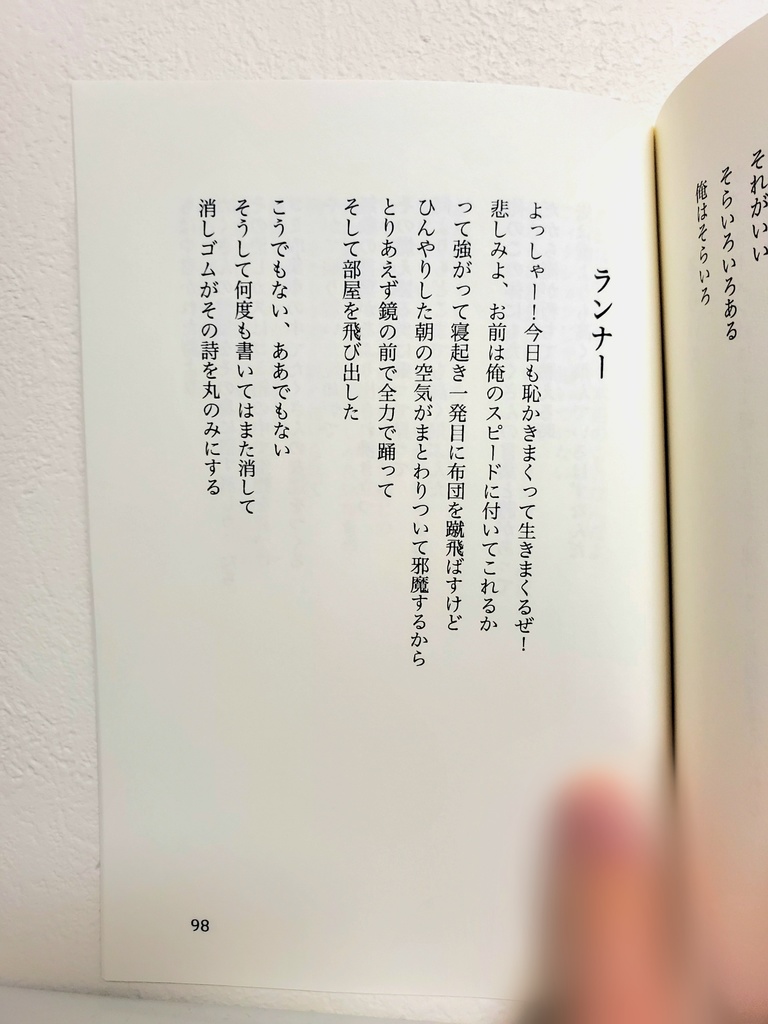 それがいい
そらいろいろある
俺はそらいろ
ランナー
よっしゃー！今日も恥かきまくって生きまくるぜ！
悲しみよ、お前は俺のスピードに付いてこれるか
って強がって寝起き一発目に布団を蹴飛ばすけど
ひんやりした朝の空気がまとわりついて邪魔するから
とりあえず鏡の前で全力で踊って
そして部屋を飛び出した
こうでもない、ああでもない
そうして何度も書いてはまた消して
消しゴムがその詩を丸のみにする
98